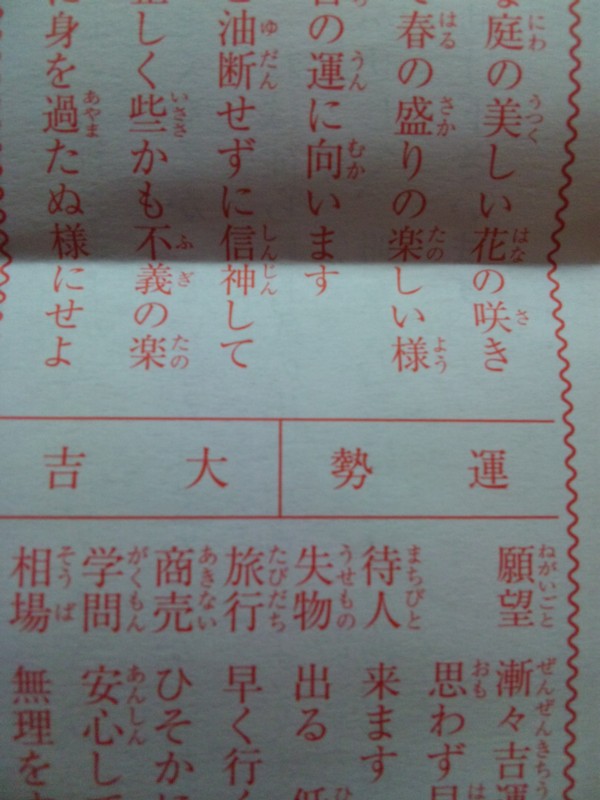 庭の美しい花の咲き
春の盛りの楽しい様
の運に向います
油断せずに信神して
しく些かも不義の楽
身を過たぬ様にせよ
運勢
大吉
願望 漸々吉運
思わず
待人 来ます
失物 出る
旅行 早く行く
商売 ひそかに
学問 安心して
相場 無理を